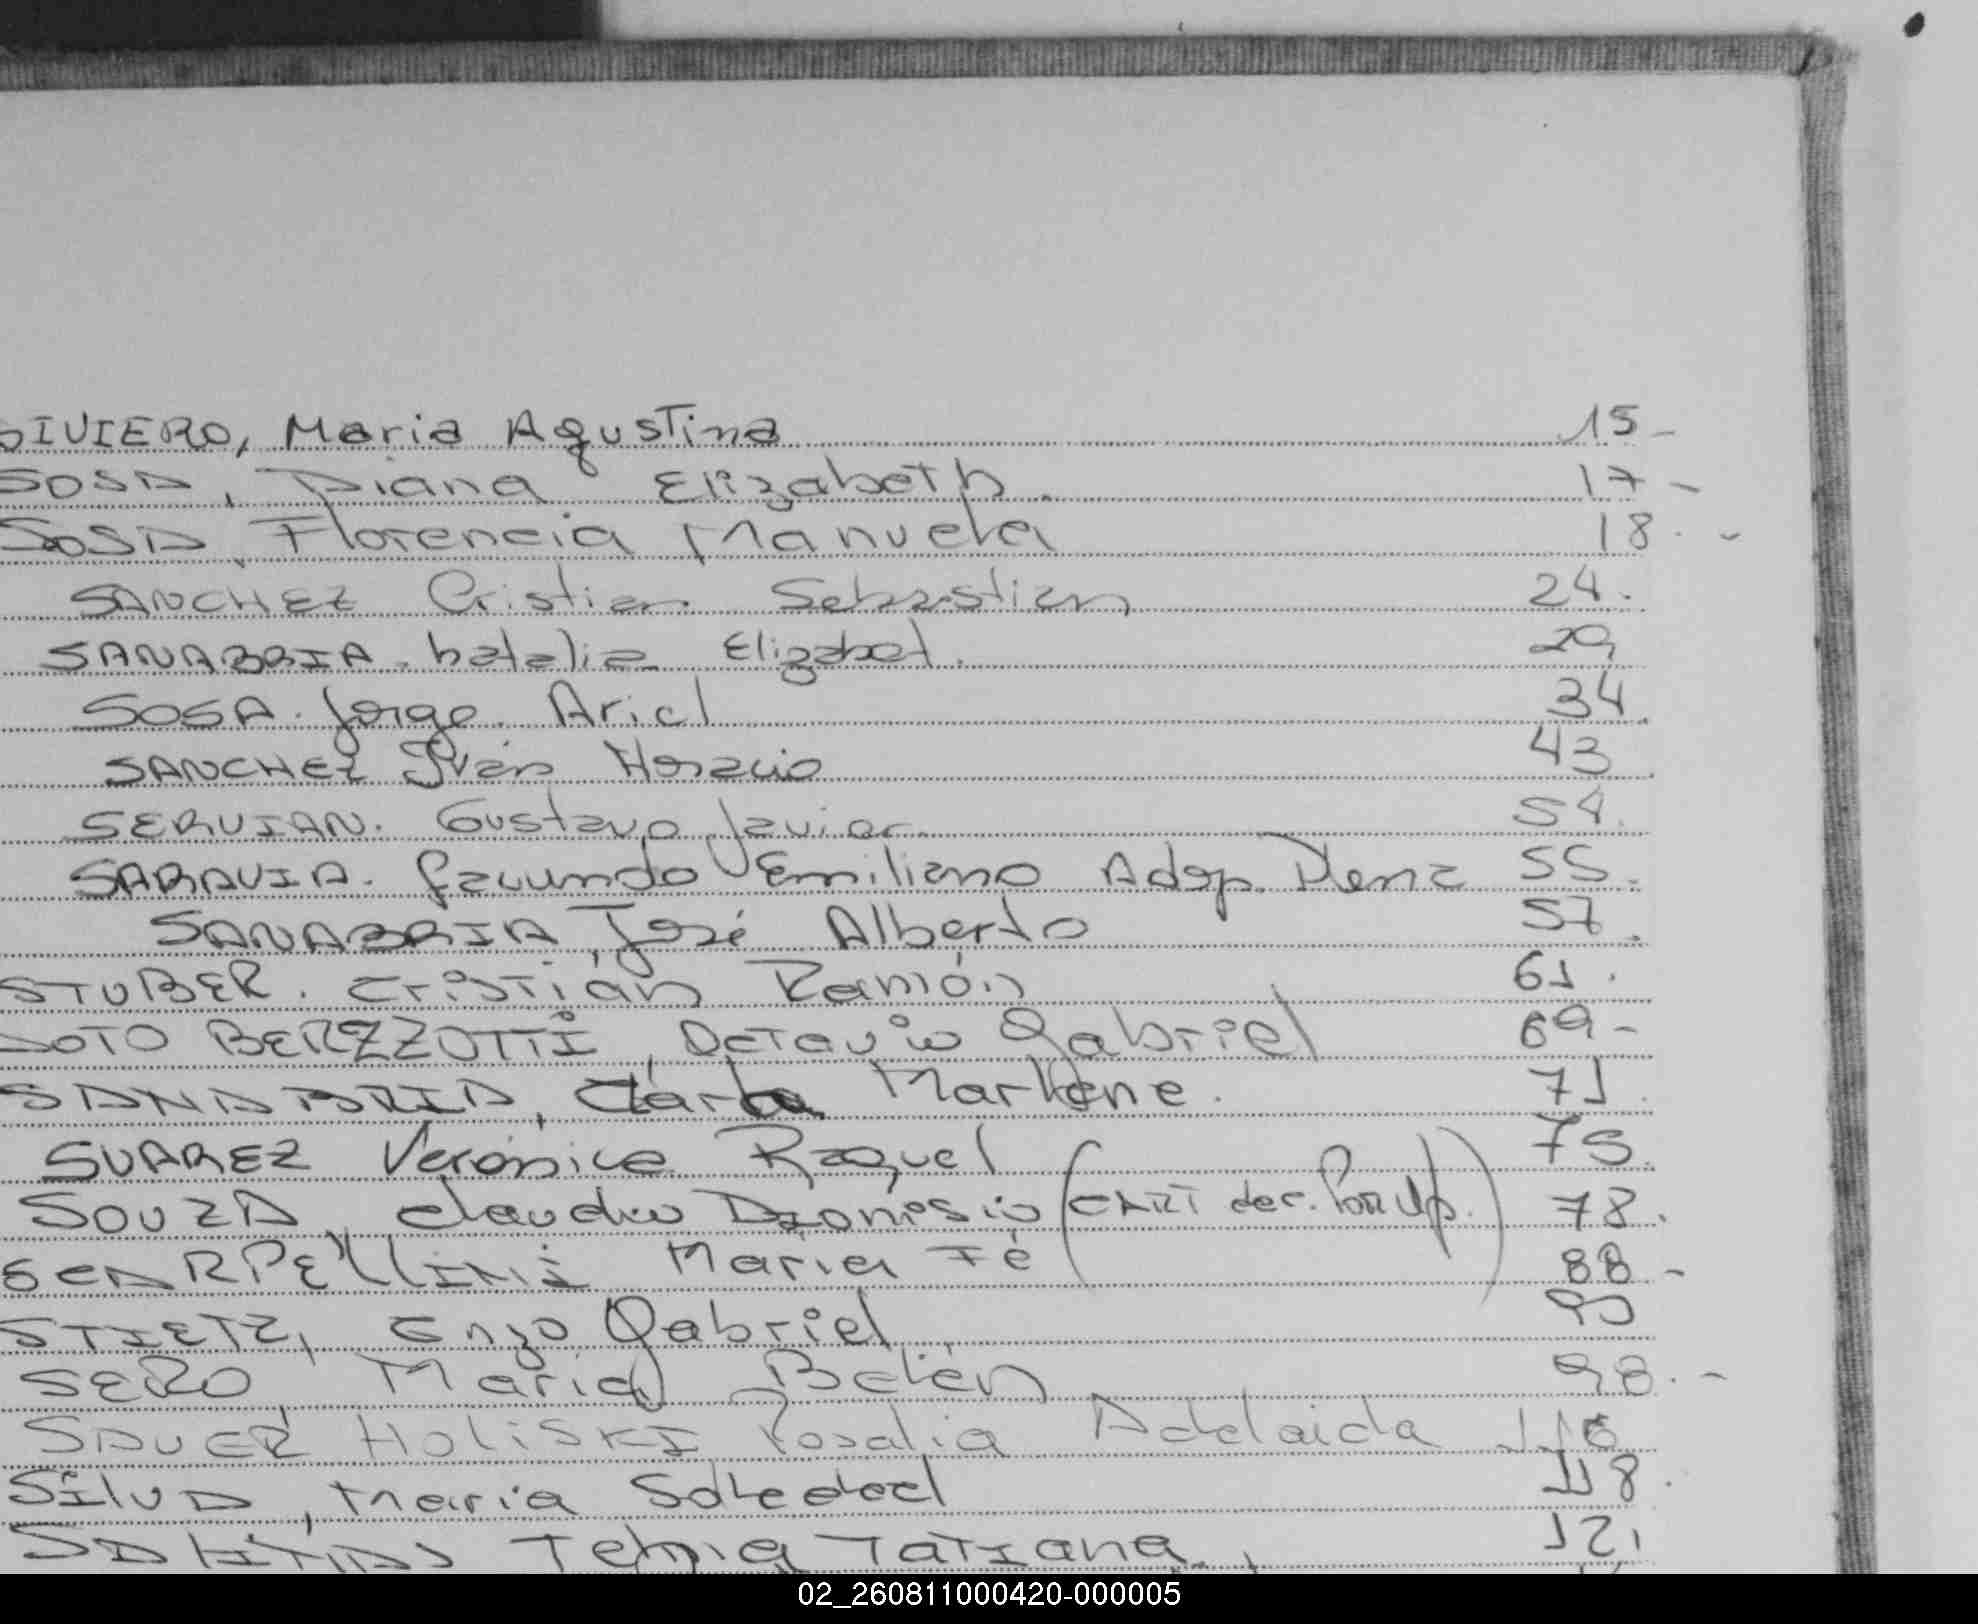 SIVIERO, Maria Agustina 15-
SOSA, Diana Elizabeth. 17-
SOSA, Florencia Manuela 18.-
SANCHEZ Cristian Sebastian 24.
SANABRIA. Natalia Elizabet. 29
SOSA. Jorge Ariel 34.
SANCHEZ Iván Horacio 43
SERVIAN. Gustavo Javier 54.
SARAVIA. Facundo Emiliano Adop. Plena 55.
SANABRIA, José Alberto 57.
STUBER. Cristián Ramón 61.
SOTO BERZZOTTI, Octavio Gabriel 69-
SANABRIA, Carla Marlene. 71.
SUAREZ Verónica Raquel 75.
SOUZA, Claudio Dionisio ( der. Por ) 78.
SCARPELLINI Maria Fé 88-
STIETZ, Enzo Gabriel 90
SERO Maria Belén 98.-
SAUER HOLISKI Rosalia Adelaida 116
SILVA, Maria Soledad 118.
Tatiana. 121